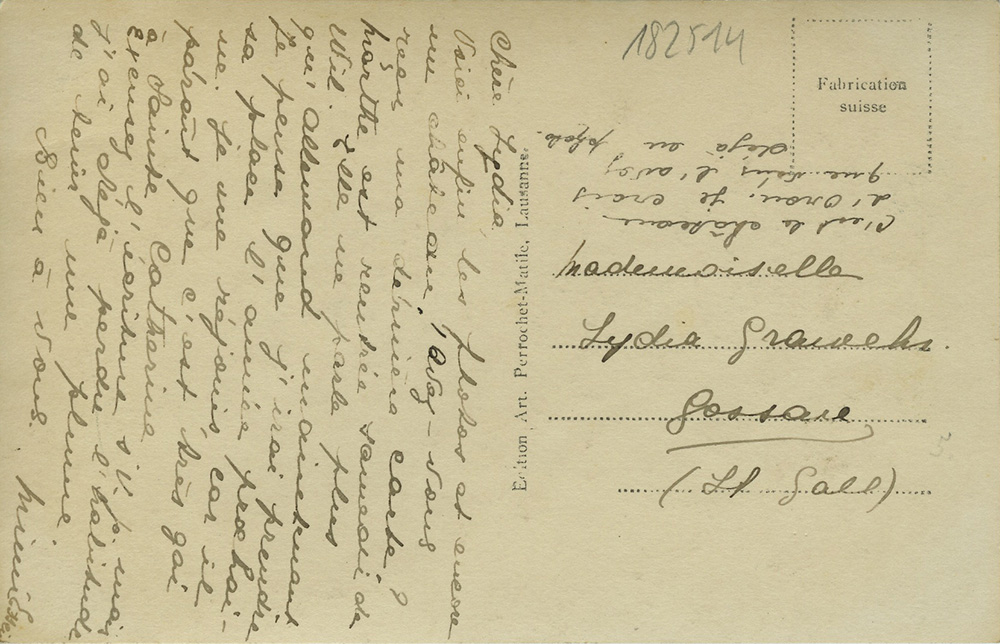 Chère Lydia,
Voici enfin les photos et encore
un château! Avez-vous
reçu ma dernière carte?
Marthe est rentrée samedi de
Wil. Elle ne parle plus
qu'allemand maintenant
Je pense que j'irai prendre
sa place l'année prochai-
ne. Je me réjouis car il
paraît que c'est très gai
à Sainte Catherine
Excusez l'écriture s.v.p. mais
j'ai déjà perdu l'habitude
de tenir une plume
Bien à vous.
Mimi
Edition Art. Perrochet-Matile, Lausanne.
182514
Fabrication
suisse
C'est le château
d'Oron, je crois
que vous l'avez
déjà en photo.
Mademoiselle
Lydia
Gossau
(St Gall)